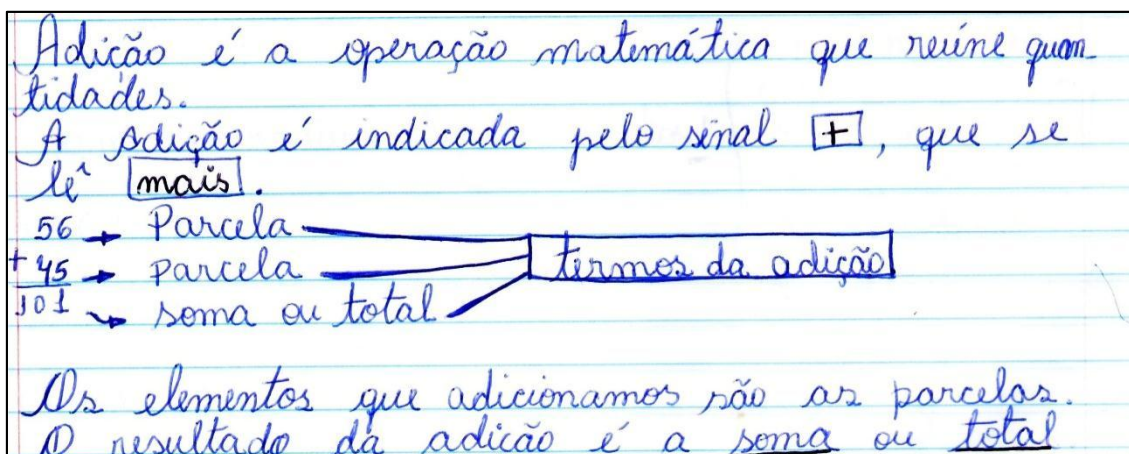 Adição é a operação matemática que reúne quan-
tidades.
A adição é indicada pelo sinal +, que se
lê mais.
56 → Parcela
+ 45 → parcela termos da adição
101 → soma ou total
Os elementos que adicionamos são as parcelas.
O resultado da adição é a soma ou total